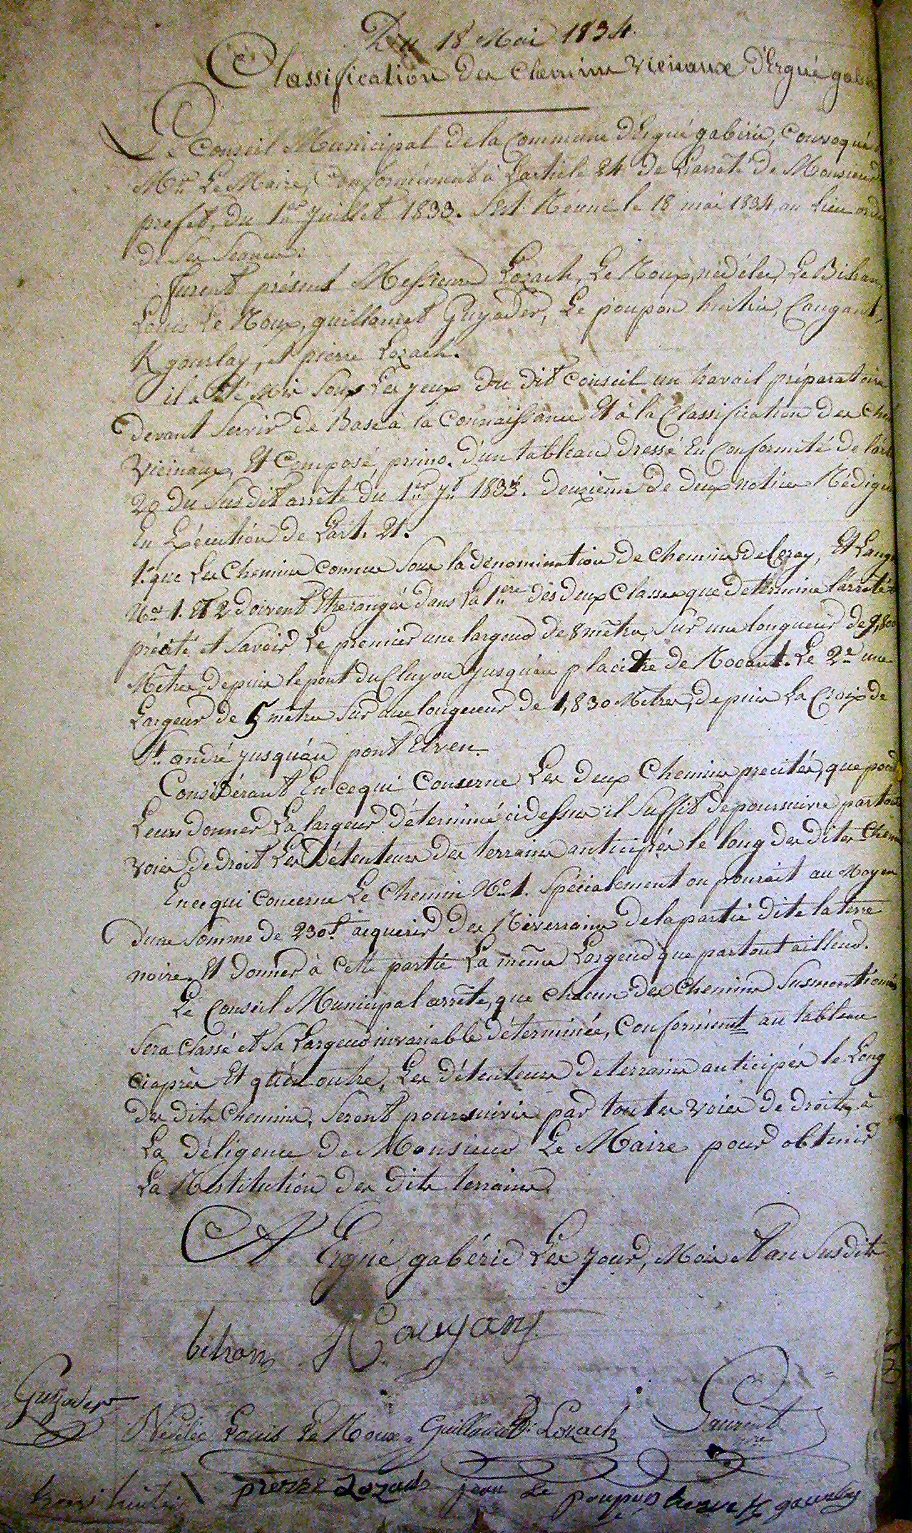 Du 18 Mai 1834.
Classification des chemins vicinaux d'Ergué gabé
Le Conseil Municipal de la Commune d'Ergué gabéric, Convoqué
Mr. Le Maire, Conformément à L'article 24 de L'arrêté de Monsieur
prefet, du 1er juillet 1833. S'est Réuni le 18 mai 1834, au lieu
de Ses Seances.
furent présents Messieurs Lozach, Le Roux, nédélec, Le Bihan
Louis Le Roux, guillamet Guyader, Le poupon huitric, Caugant,
K gourlay, et pierre Lozach.
il a Eté mis Sous Les yeux du dit Conseil un travail préparatoire
devant Servir de Base à la Connaissance Et à la Classification des che
Vicinaux, Et Composé, primo. d'un tableau dressé En Conformité de l'art
20 du Susdit arrêté du 1er 1833. deuxième de deux notices Rédigé
En L'Exécution de L'art. 21.
1. que Les Chemins connus Sous la dénomination de Chemins de Et
No. 1. Et 2 doivent Etre rangés dans La 1ere des deux Classes que détermine l'arrêté
précité et Savoir Le premier une largeur de 8 mètres, Sur une longueur de
Mètres depuis le pont du Cluyou jusqu'au placitre de Le 2e une
Largeur de 5 mètres Sur une longueur de 1,830 Mètres, depuis La Croix de
St. andré jusqu'au pont
Considérant En ce qui Conserne Les deux Chemins precités, que pour
Leurs donner La largeur déterminé ci dessus il Suffit de poursuivre par tout
voies de droit Les Détenteurs des terrains anticipés le long des dites Chemi
En ce qui Concerne Le Chemin No. 1. Spécialement on pourait au Moyen
d'une Somme de 230f. acquerir des Riverrains de la partie dite la terre
noire, Et donner à cette partie La même Largeur que partout ailleur.
Le Conseil Municipal arrête, que chacun des chemins Susmentionnés
Sera classé et Sa Largeur invariable déterminée, Conforment au tableau
ci après Et qu'En outre, Les détenteurs de terrains anticipés le Long
des dits Chemins, Seront poursuivis par toutes voies de droits, à
La déligence de Monsieur Le Maire pour obtenir
La Restitution des dits terrains.
A Ergué gabéric Les jour, Mois Et an Susdits
bihan Caugant
Guyader
Nédélec Louis Le Roux Guillamet R. Lozach Laurent
huitric pierre Lozach jean Le poupon K gourlay